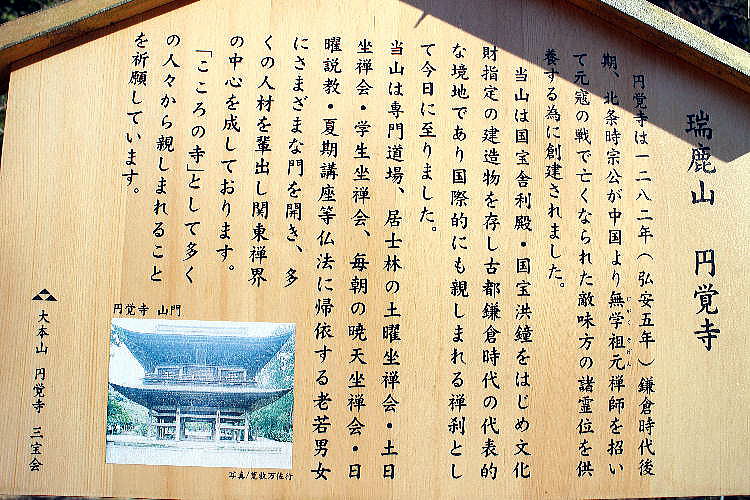 瑞鹿山　円覚寺
円覚寺は一二八二年（弘安五年）鎌倉時代後
期、北条時宗公が中国より無学祖元禅師を招い
て元寇の戦で亡くなられた敵味方の諸霊位を供
養する為に創建されました。
当山は国宝舎利殿・国宝洪鐘をはじめ文化
財指定の建造物を存し古都鎌倉時代の代表的
な境地であり国際的にも親しまれる禅刹とし
て今日に至りました。
当山は専門道場、居士林の土曜坐禅会・土日
坐禅会・学生坐禅会、毎朝の暁天坐禅会・日
曜説教・夏期講座等仏法に帰依する老若男女
にさまざまな門を開き、多
くの人材を輩出し関東禅界
の中心を成しております。
「こころの寺」として多く
の人々から親しまれること
を祈願しています。
円覚寺 山門
大本山　円覚寺　三宝会